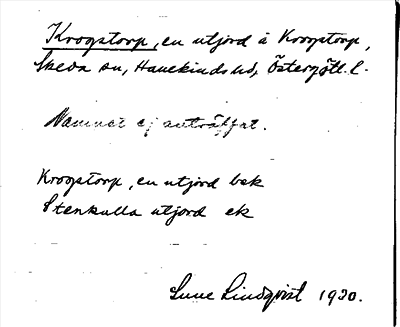 Krogstorp, en utjord å Krogstorp,
Skeda sn, Hanekinds hd, Östergötl. l.
Namnet ej anträffat.
Krogstorp, en utjord bek
Stenkulla utjord ek
Sune Lindqvist 1930.